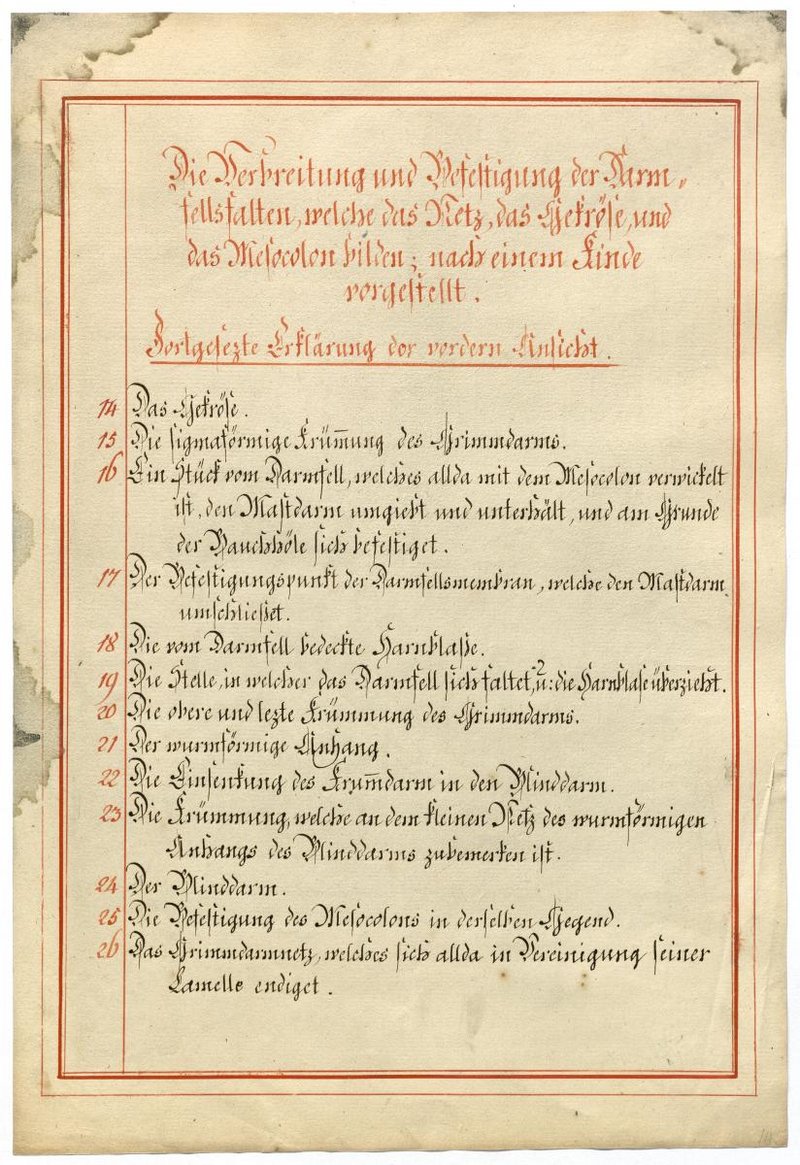 Die Verbreitung und Befestigung der Darm-
fellsfalten, welche das Netz, das Gekröse, und
das Mesocolon bilden; nach einem Kinde
vorgestellt.
Fortgesezte Erklärung der vordern Ansicht.
14 Das Gekröse.
15 Die sigmaförmige Krüm̅ung des Grimmdarms.
16 Ein Stück vom Darmfell, welches allda mit dem Mesocolon verwickelt
ist, den Mastdarm umgiebt und unterhält, und am Grunde
der Bauchhöle sich befestiget.
17 Der Befestigungspunkt der Darmfellsmembran, welche den Mastdarm
umschließet.
18 Die vom Darmfell bedeckte Harnblaße.
19 Die Stelle, in welcher das Darmfell sich faltet, u: die Harnblase überzieht.
20 Die obere und lezte Krümmung des Grimmdarms.
21 Der wurmförmige Anhang.
22 Die Einsenkung des Krum̅darm in den Blinddarm.
23 Die Krümmung, welche an dem kleinen Netz des wurmförmigen
Anhangs des Blinddarms zubemerken ist.
24 Der Blinddarm.
25 Die Befestigung des Mesocolons in derselben Gegend.
26 Das Grimmdarmnetz, welches sich allda in Vereinigung seiner
Lamelle endiget.